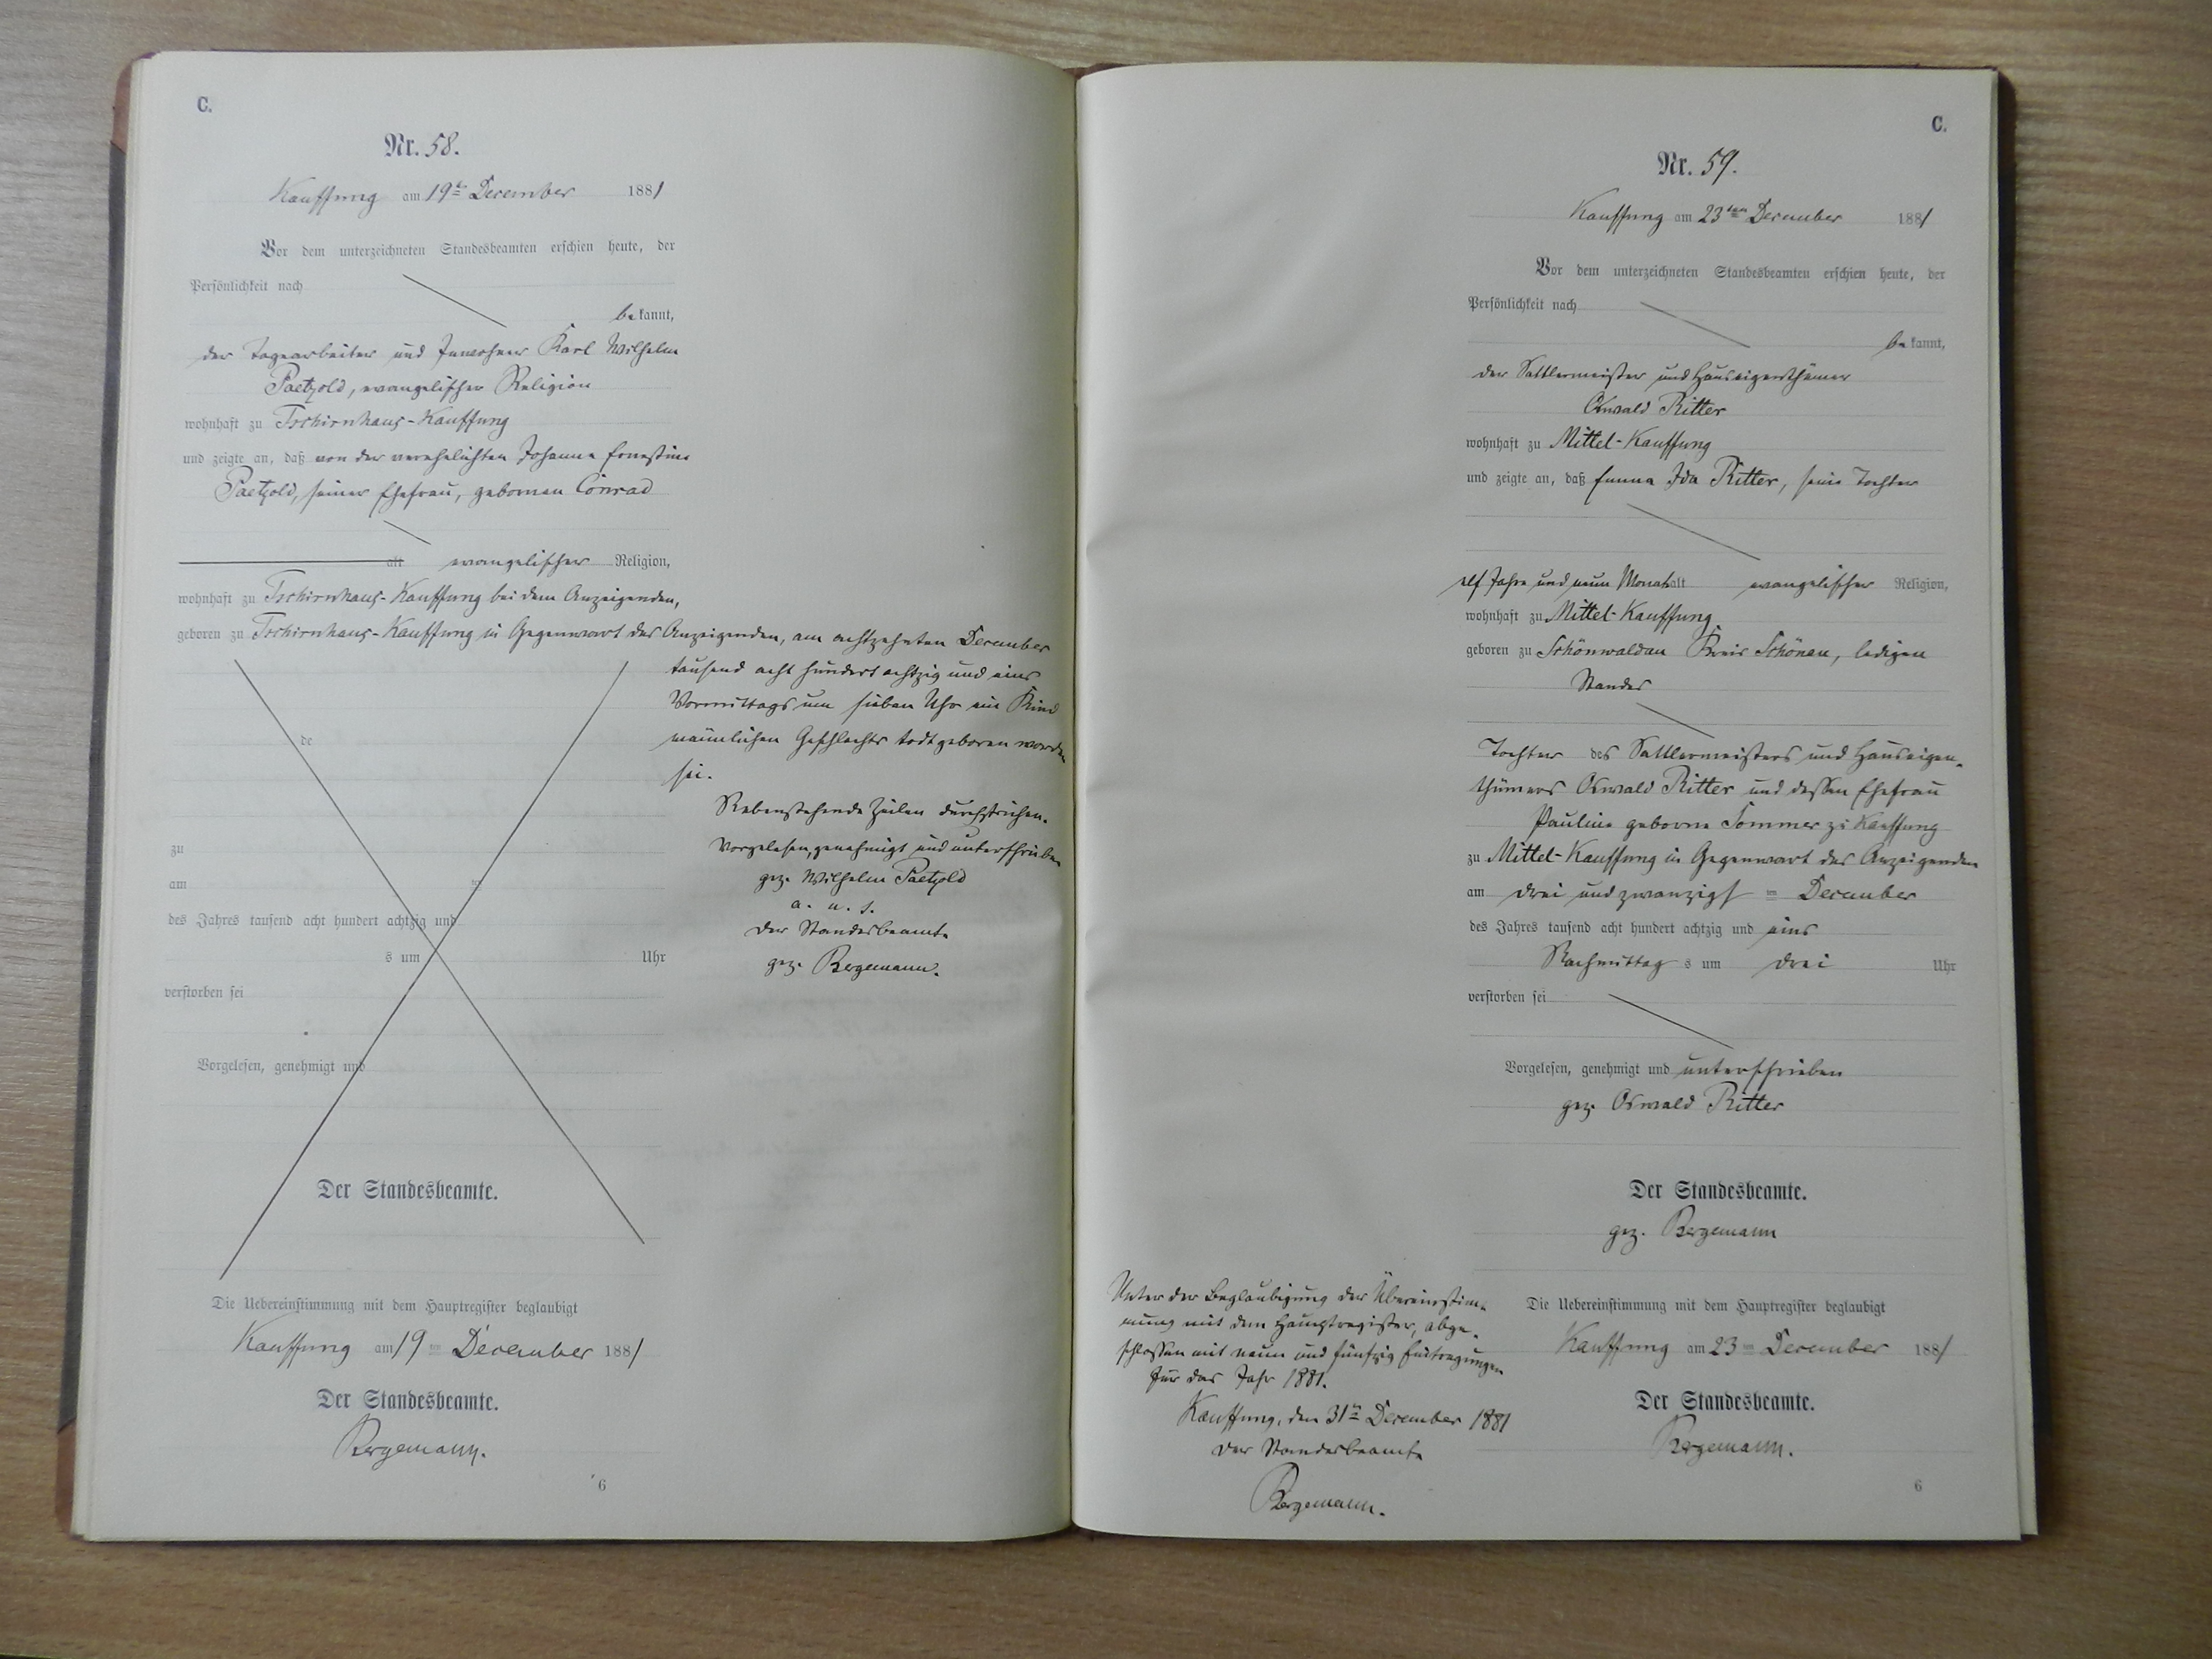 C.
Nr. 58.
Kauffung am 19ten December 1881
Vor dem unterzeichneten Standesbeamten erschien heute, der
Persönlichkeit nach
bekannt,
der Tagearbeiter und Inwohner Karl Wilhelm
Paetzold, evangelischer Religion
wohnhaft zu Tschirnhaus-Kauffung
und zeigte an, daß von der verehelichten Johanne Ernestine
Paetzold, seiner Ehefrau, gebornen Conrad
alt evangelischer Religion,
wohnhaft zu Tschirnhaus-Kauffung bei dem Anzeigenden,
geboren zu Tschirnhaus-Kauffung in Gegenwart des Anzeigenden, am achtzehnten December
tausend acht hundert achtzig und eins
Vormittags um sieben Uhr ein Kind
männlichen Geschlechts todt geboren worden
sei.
Nebenstehende Zeilen durchstrichen.
Vorgelesen, genehmigt und unterschrieben
gez. Wilhelm Paetzold
a. u. s.
Der Standesbeamte
gez. Bergemann.
de
zu
am ten
des Jahres tausend acht hundert achtzig und
s um Uhr
verstorben sei
Vorgelesen, genehmigt und
Der Standesbeamte.
Die Uebereinstimmung mit dem Hauptregister beglaubigt
Kauffung am 19 ten December 1881
Der Standesbeamte.
Bergemann.
6
C.
Nr. 59.
Kauffung am 23ten December 1881
Vor dem unterzeichneten Standesbeamten erschien heute, der
Persönlichkeit nach
bekannt,
der Sattlermeister und Hauseigenthümer
Oswald Ritter
wohnhaft zu Mittel-Kauffung
und zeigte an, daß Emma Ida Ritter, seine Tochter
elf Jahre und neun Monat alt evangelischer Religion,
wohnhaft zu Mittel-Kauffung
geboren zu Schönwaldau Kreis Schönau, ledigen
Standes
Tochter des Sattlermeisters und Hauseigen-
thümers Oswald Ritter und dessen Ehefrau
Pauline geborne Sommer zu Kauffung
zu Mittel-Kauffung in Gegenwart des Anzeigenden
am drei und zwanzigst ten December
des Jahres tausend acht hundert achtzig und eins
Nachmittag s um drei Uhr
verstorben sei
Vorgelesen, genehmigt und unterschrieben
gez. Oswald Ritter
Der Standesbeamte.
gez. Bergemann
Die Uebereinstimmung mit dem Hauptregister beglaubigt
Kauffung am 23 ten December 1881
Der Standesbeamte.
Bergemann.
6
Unter der Beglaubigung der Übereinstim-
mung mit dem Hauptregister, abge-
schlossen mit neun und fünfzig Eintragungen
für das Jahr 1881.
Kauffung, den 31ten December 1881
Der Standesbeamte
Bergemann.